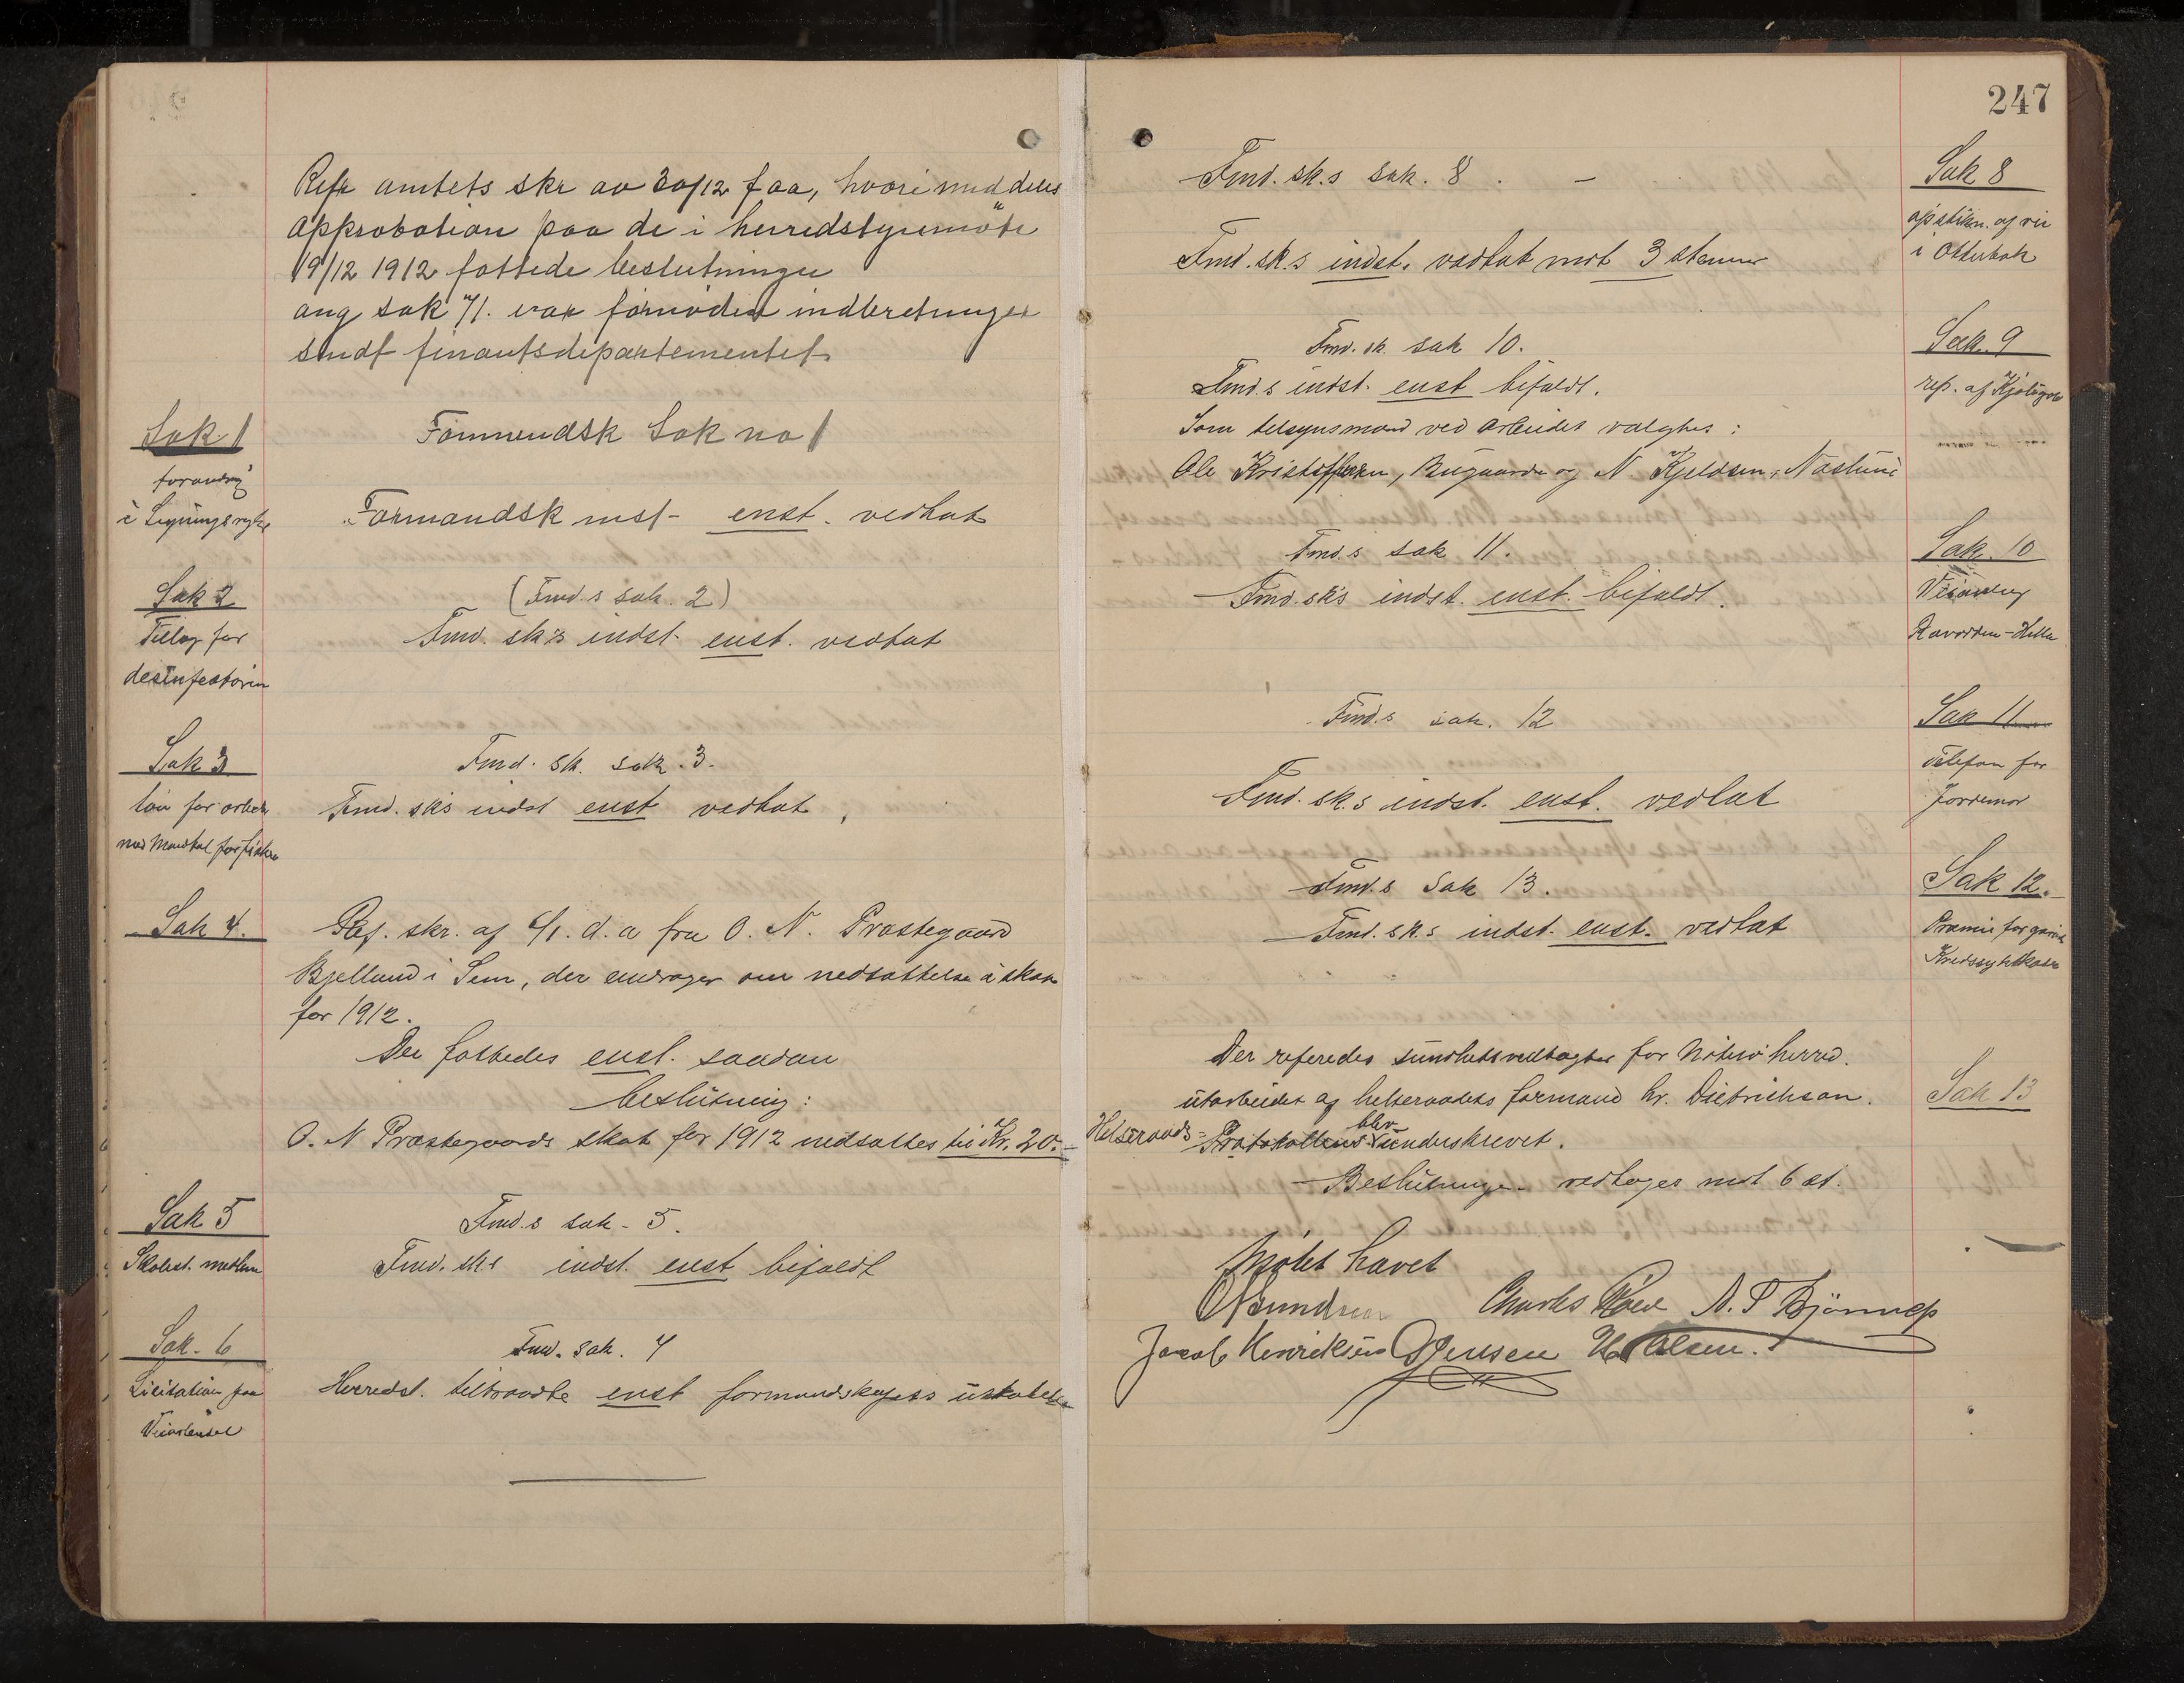 Refr amtets skr av 30/12 f aa, hvori meddeles
approbation paa de i herredstyremøte
19/12 1912 fattede beslutninger
ang sak 7/1. var fornøden indberetninger
sendt finantsdepartementet
Sak 1
forandring
i Ligningsregler
Formendsk Sak no 1
Formandsk inst- enst. vedtat
Sak 2
Tillæg for
desinfektøren
(Fmd.s sak. 2)
Fmd. sk's indst. enst. vedtat
Sak 3
løn for arbeide
med Mandtal for fiskere
Fmd. sk. sak. 3.
Fmd. sk's indst enst vedtat.
Sak 4.
Ref. skr. af 6/1. d. a fra O. N. Præstegaard
Bjelland i Sem, der andrager om nedsættelse i skat
for 1912.
Der fattedes enst. saadan
beslutning:
O. N Præstegaards skat for 1912 nedsættes til Kr. 20.-
Sak 5
Skolest. medlem
Fmd.s sak - 5.
Fmd. sk.s indst. enst bifaldt
Sak. 6
Licitation paa
Veiarbeidet
Fmd. sak. 7
Herredst. tiltraadte enst formandskapets
247
Fmd. sk.s sak. 8. -
Fmd. sk.s indst. vedtat mot 3 stemmer
Sak 8
opstikn. af vei
i Otterbæk
Fmd. sk. sak 10.
Fmd.s indst. enst bifaldt.
Som tilsynsmænd ved arbeidet valgtes:
Ole Kristoffersen, Bugaarden og N Kjeldsen,
Sak. 9
rep. af
Fmd.s sak 11.
Fmd. sk's indst. enst. bifaldt.
Sak. 10
Veianlæg
Fmd.s sak. 12
Fmd. sk.s indst. enst. vedtat
Sak 11
Telefon for
Jordemor
Fmd.s Sak 13.
Fmd. sk.s indst. enst. vedtat
Sak 12.
Præmie for
Kredssykekasse
Der referedes sundhetsvedtægter for Nøterø herred.
utarbeidet af helseraadets formand hr. Dietrichson.
Helseraads-Protokollen blev underskrevet.
Beslutningen vedtages mot 6 st.
Sak 13
Møtet hævet
Charles Røed N. P Bjønnes
Jacob Henriksen G Jensen H Olsen.